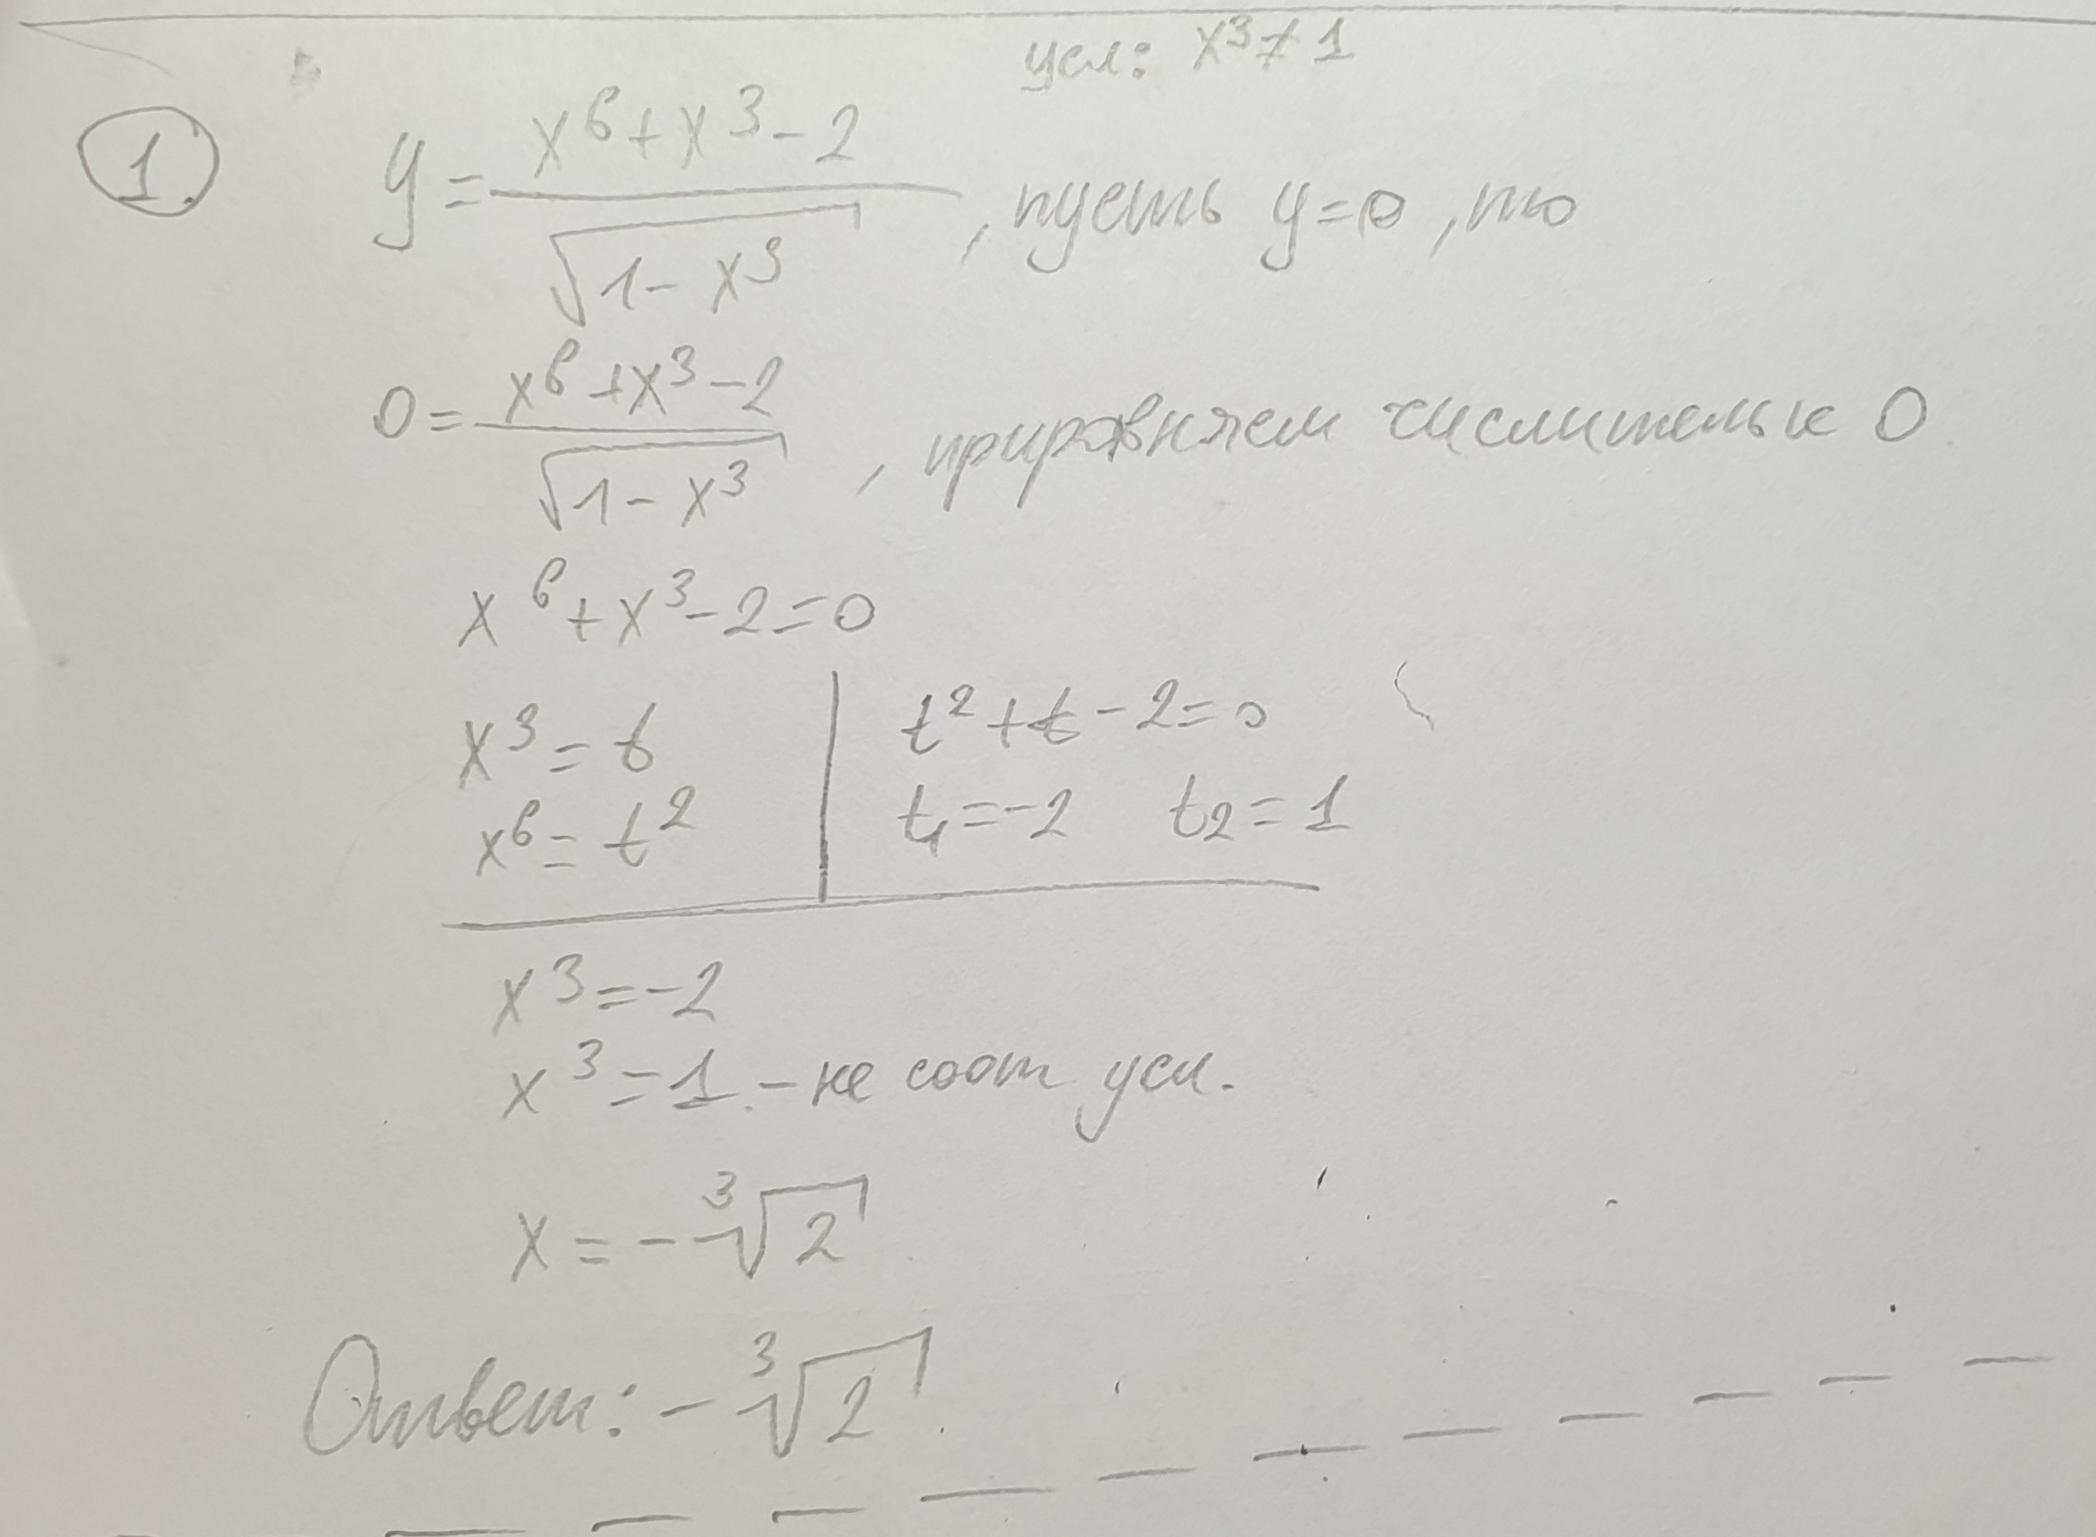 усл: x³ ≠ 1
1. y = (x⁶ + x³ - 2) / √(1 - x³) , пусть y = 0 , то
0 = (x⁶ + x³ - 2) / √(1 - x³) , приравняем числитель к 0
x⁶ + x³ - 2 = 0
x³ = t | t² + t - 2 = 0
x⁶ = t² | t₁ = -2 t₂ = 1
x³ = -2
x³ = 1 - не соот усл.
x = -∛2
Ответ: -∛2.